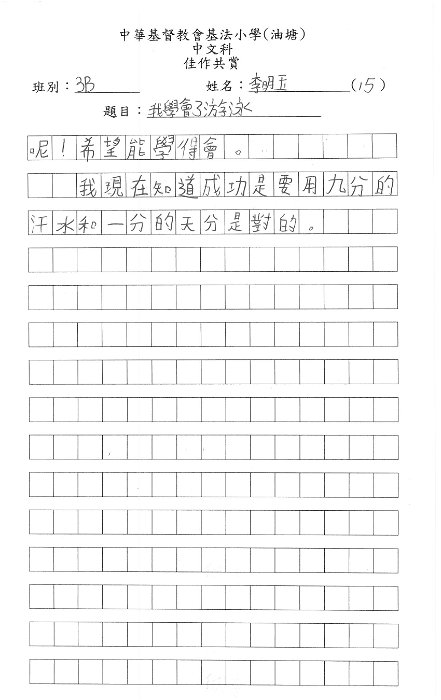 中華基督教會基法小學(油塘)
中文科
佳作共賞
班別：3B 姓名：李明玉 (15)
題目：我學會了游泳
呢！希望能學得會。
我現在知道成功是要用九分的
汗水和一分的天分是對的。